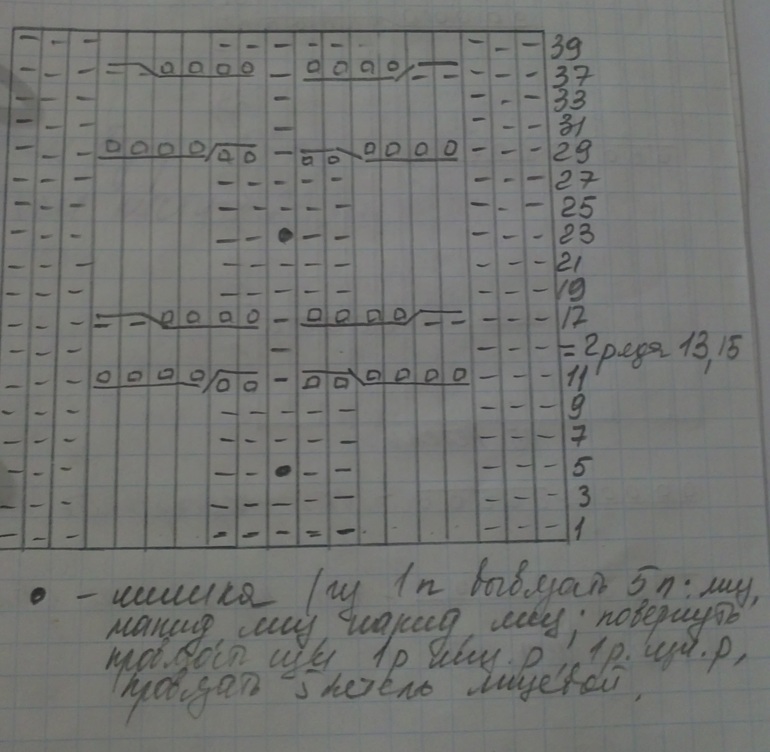 39
37
33
31
29
27
25
23
21
19
17
= 2 ряда 13,15
11
9
7
5
3
1
• - шишка (из 1п вывязать 5п: лиц,
накид, лиц, накид, лиц; повернуть
1р лиц.р, 1р. изн.р,
провязать 5 петель лицевой.